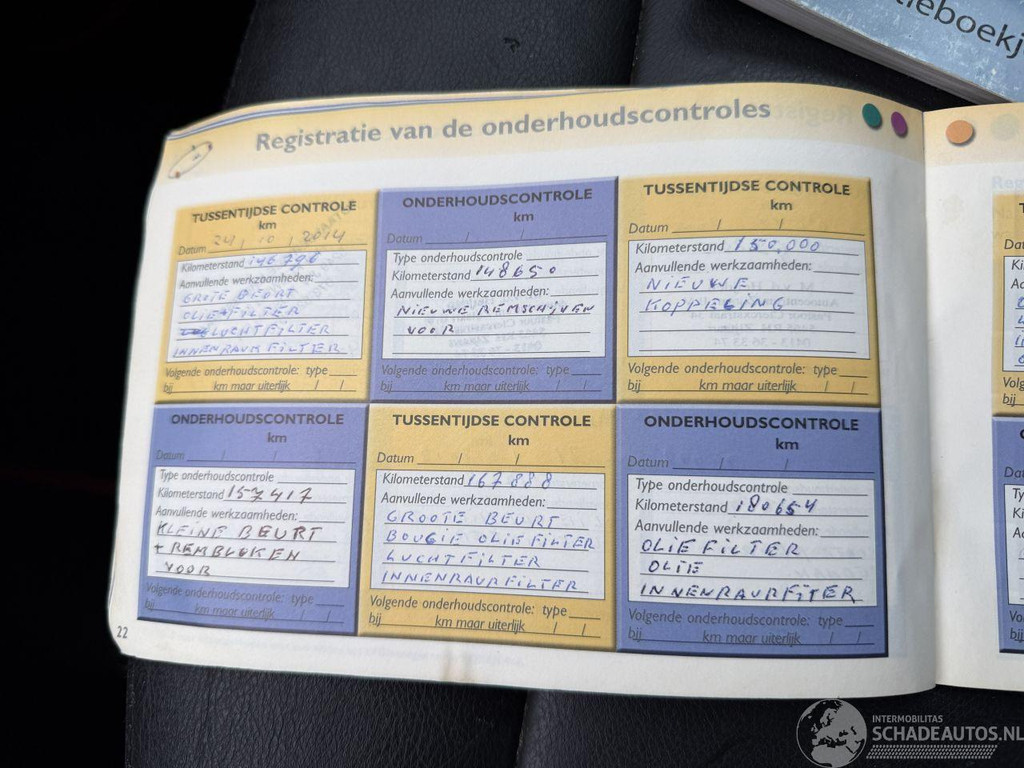 Registratie van de onderhoudscontroles
TUSSENTIJDSE CONTROLE
km
Datum 24 / 10 / 2014
Kilometerstand 146796
Aanvullende werkzaamheden:
GROTE BEURT
OLIE FILTER
LUCHTFILTER
INNENRAUR FILTER
Volgende onderhoudscontrole: type
bij km maar uiterlijk / /
ONDERHOUDSCONTROLE
km
Datum / /
Type onderhoudscontrole
Kilometerstand 148650
Aanvullende werkzaamheden:
NIEUWE REMSCHIJVEN
VOOR
Volgende onderhoudscontrole: type
bij km maar uiterlijk / /
TUSSENTIJDSE CONTROLE
km
Datum / /
Kilometerstand 150,000
Aanvullende werkzaamheden:
NIEUWE
KOPPELING
Volgende onderhoudscontrole: type
bij km maar uiterlijk / /
ONDERHOUDSCONTROLE
km
Datum / /
Type onderhoudscontrole
Kilometerstand 157417
Aanvullende werkzaamheden:
KLEINE BEURT
+ REMBLOKEN
VOOR
Volgende onderhoudscontrole: type
bij km maar uiterlijk / /
TUSSENTIJDSE CONTROLE
km
Datum / /
Kilometerstand 167888
Aanvullende werkzaamheden:
GROOTE BEURT
BOUGIE OLIE FILTER
LUCHTFILTER
INNENRAURFILTER
Volgende onderhoudscontrole: type
bij km maar uiterlijk / /
ONDERHOUDSCONTROLE
km
Datum / /
Type onderhoudscontrole
Kilometerstand 180654
Aanvullende werkzaamheden:
OLIE FILTER
OLIE
INNENRAURFITER
Volgende onderhoudscontrole: type
bij km maar uiterlijk / /
22
INTERMOBILITAS
SCHADEAUTOS.NL